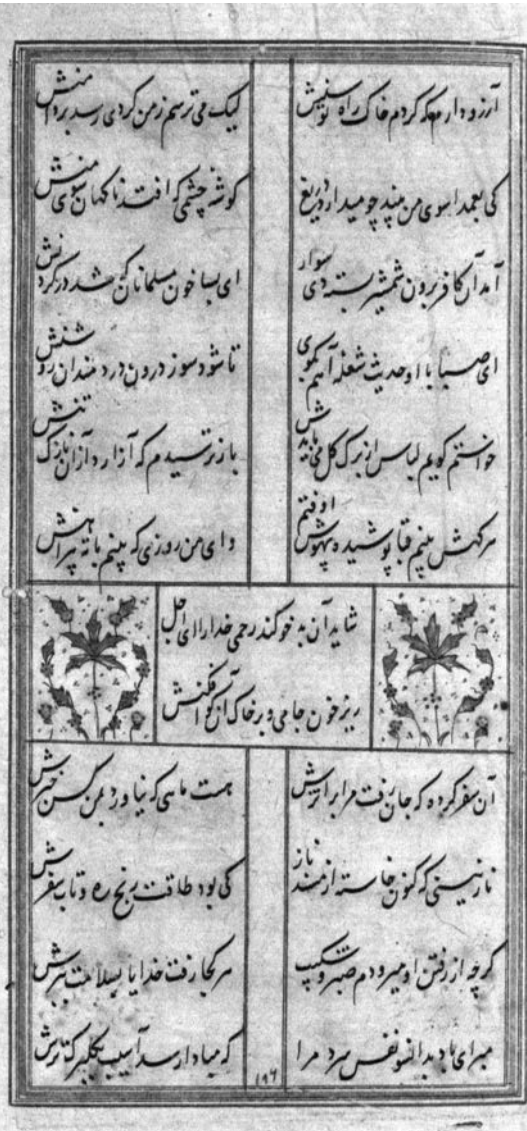 آرزو دارم که کردم خاک راه توسنش لیک می ترسم ز من کردی رسد بر دامنش
کی بعمدا سوی من بیند چو میدارد دریغ کوشه چشمی که افتد ناکهان سوی منش
آمد آن کافر برون شمشیر بسته دی سوار ای بسا خون مسلمانان که شد در کردنش
ای صبا با او حدیث شعله آهم بکوی تا شود سوز درون دردمندان روشنش
خواستم کویم لباس از برک کل می بایدش باز ترسیدم که آزارد از آن نازک تنش
هرکهش بینم قبا پوشیده بیهوش اوفتم وای من روزی که بینم با ته پیراهنش
شاید آن بدخو کند رحمی خدا را ای اجل
ریز خون جامی و بر خاک آن کو افکنش
آن سفر کرده که جان رفت مرا بر اثرش هست ماهی که نیاورد بمن کس خبرش
نازنینی که کنون خاسته از مسند ناز کی بود طاقت رنج ره و تاب سفرش
کرچه از رفتن او میرودم صبر و شکیب هر کجا رفت خدایا بسلامت ببرش
مبر ای باد بدانسو نفس سرد مرا که مبادا رسد آسیب بکلبرک ترش
۱۹۶